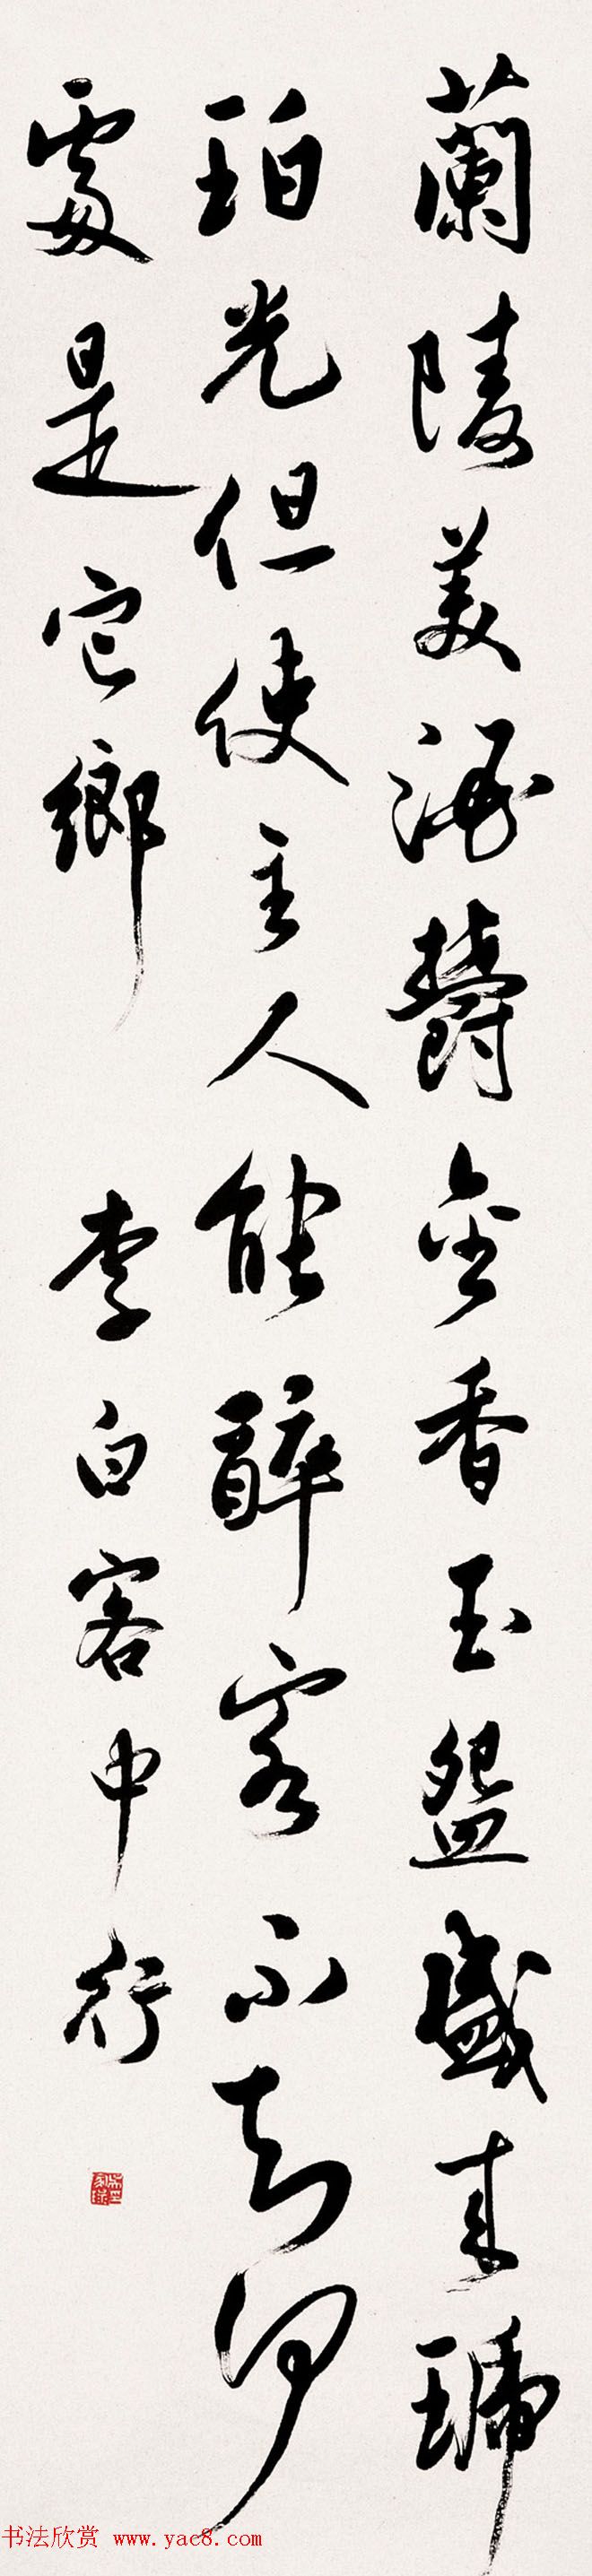 蘭陵美酒欝金香玉盌盛来琥
珀光但使主人能醉客不知何
處是它鄉
李白客中行
书法欣赏 www.yac8.com